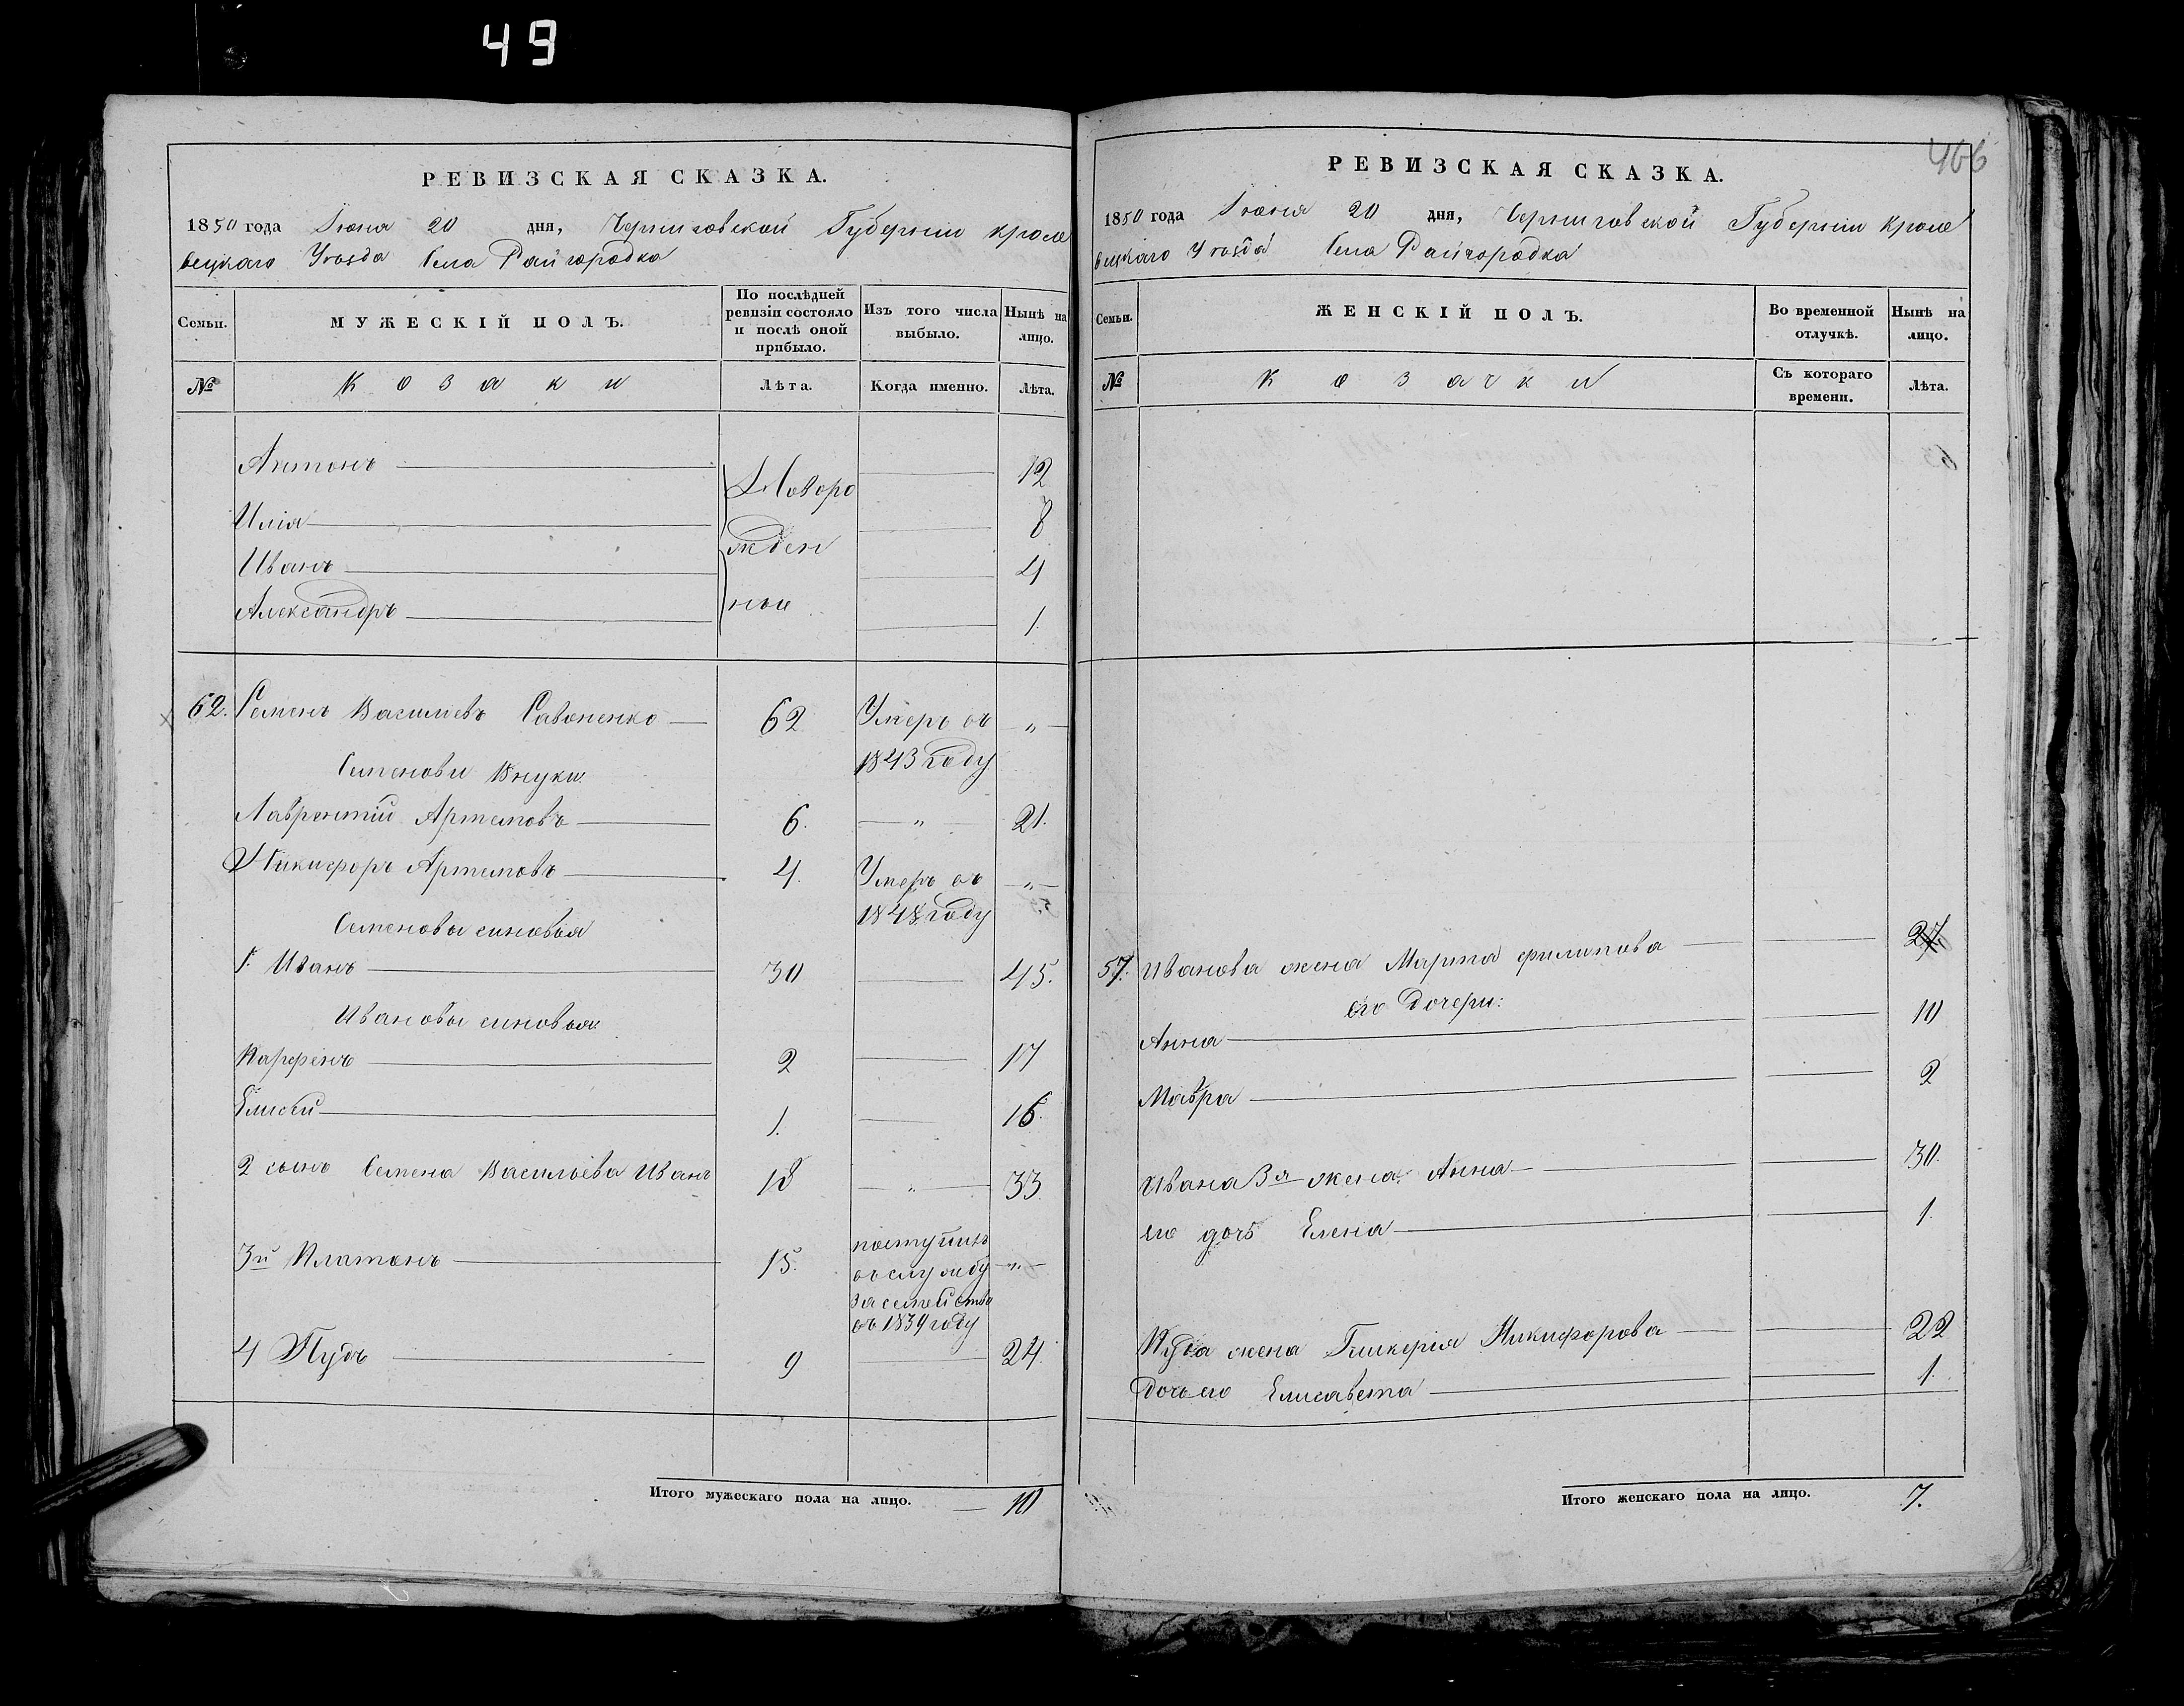 49
РЕВИЗСКАЯ СКАЗКА.
1850 года Іюня 20 дня, Черниговской Губерніи Кроле
вецкаго Уѣзда Села Райгородка
Семьи.
МУЖЕСКІЙ ПОЛЪ.
По послѣдней
ревизіи состояло
и послѣ оной
прибыло.
Изъ того числа
выбыло.
Нынѣ на
лицо.
№
Козаки
Лѣта.
Когда именно.
Лѣта.
Антонъ 12
Новоро
Илія 8
жден
Иванъ 4
ные
Александръ 1.
62. Семенъ Васильевъ Савоненко 62 Умеръ въ „
Семенови Внуки 1843 году
Лаврентій Артемовъ 6. „ 21.
Никифоръ Артемовъ 4. Умеръ въ „
1848 году
Семеновы синовья
1. Иванъ 30 45.
Ивановы синовья:
Парфенъ 2 17
Елисей 1. 16.
2 сынъ Семена Васильева Иванъ 18 „ 33.
3й Платонъ 15. поступилъ
въ службу „
за семейство
въ 1839 году
4 Пудъ 9 24.
Итого мужескаго пола на лицо. 10
466
РЕВИЗСКАЯ СКАЗКА.
1850 года Іюня 20 дня, Черниговской Губерніи Кроле
вецкаго Уѣзда Села Райгородка
Семьи.
ЖЕНСКІЙ ПОЛЪ.
Во временной
отлучкѣ.
Нынѣ на
лицо.
№
Козачки
Съ котораго
времени.
Лѣта.
57. Иванова жена Марина Филипова
его Дочери:
Анна 10
Мавра 2
Ивана 3я жена Анна 30.
его дочь Елена 1.
Пуда жена Гликерія Никифорова 22
Дочь его Елисавета 1.
Итого женскаго пола на лицо. 7.